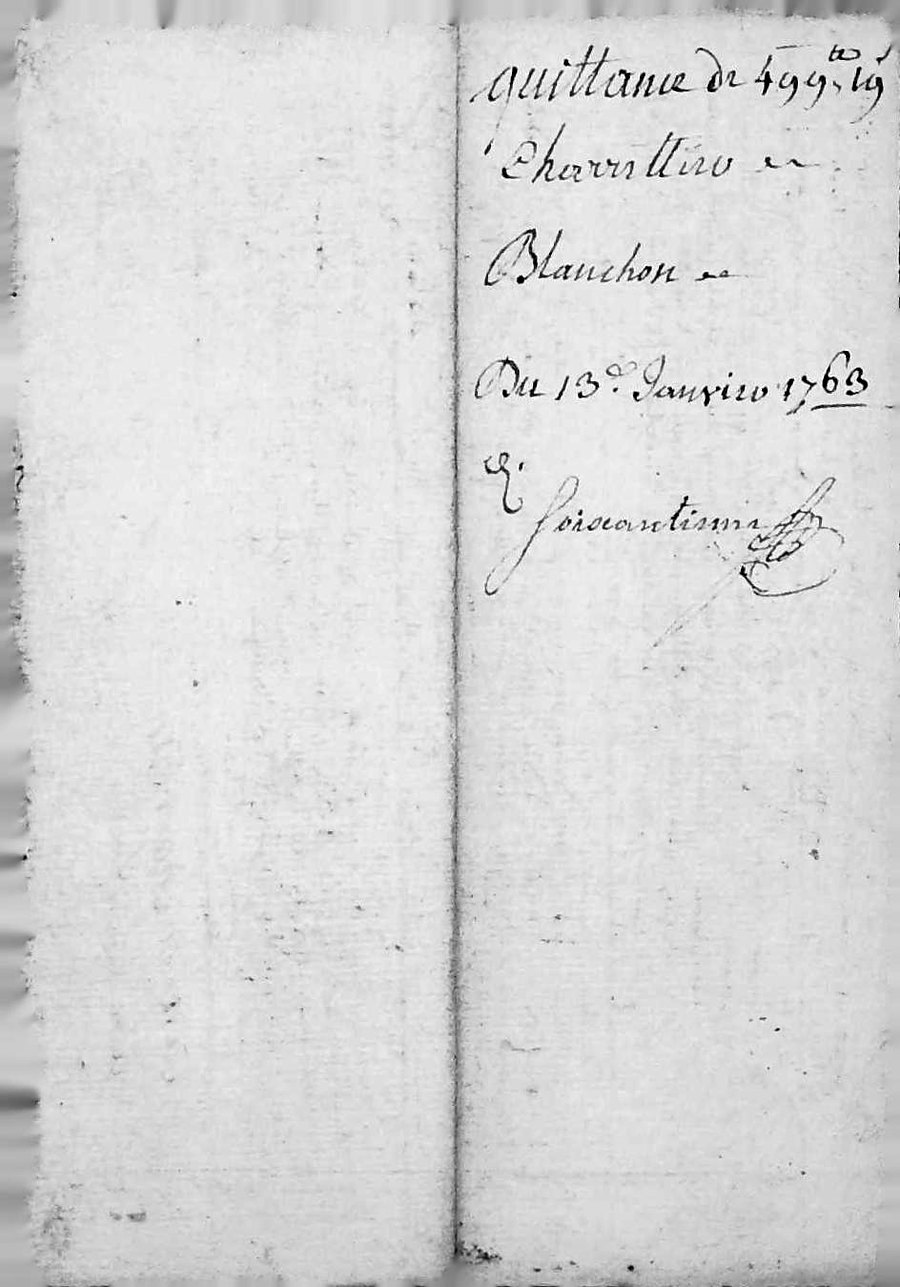 quittance de 499lt 19s
Charrettier
Blanchon
Du 13e. Janvier 1763